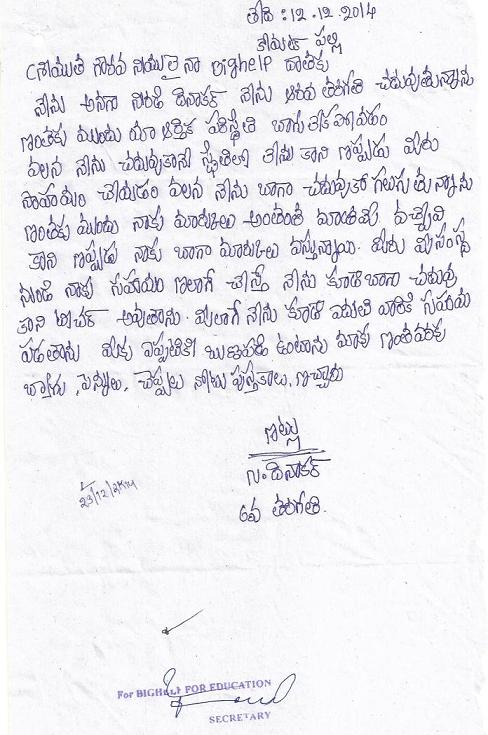 తేది : 12.12.2014
కోమట పల్లి
గౌరవ నీయులై నా Bighelp దాతకు
నేను అనగా దినాకర్ నేను ఆరవ తరగతి చదువుతున్నాను
ఇంతకు ముందు మా ఆర్థిక పరిస్థితి బాగు లేక పోవడం
వలన నేను చదువుకొనే స్థితిలో లేను కాని ఇప్పుడు మీరు
సాహయం చేయడం వలన నేను బాగా చదువుకో గలుగు తున్నాను
ఇంతకు ముందు నాకు మారుకులు అంతంత మాత్రమే వచ్చేవి
కాని ఇప్పుడు నాకు బాగా మారుకులు వస్తున్నాయి. మీరు మీ సంస్థ
నుండి నాకు సహయం ఇలాగే చేస్తే నేను కూడా బాగా చదువు
కొని టీచర్ అవుతాను. మీలాగే నేను కూడా పదిమంది వారికి సహయ
పడతాను మీకు ఎప్పటికి ఋణపడి ఉంటాను మాకు ఇంతవరకు
బ్యాగు, పెన్నులు, చెప్పులు నోటు పుస్తకాలు, ఇచ్చారు
ఇట్లు
దినాకర్
6వ తరగతి.
23/12/2014
For BIGHELP FOR EDUCATION
SECRETARY